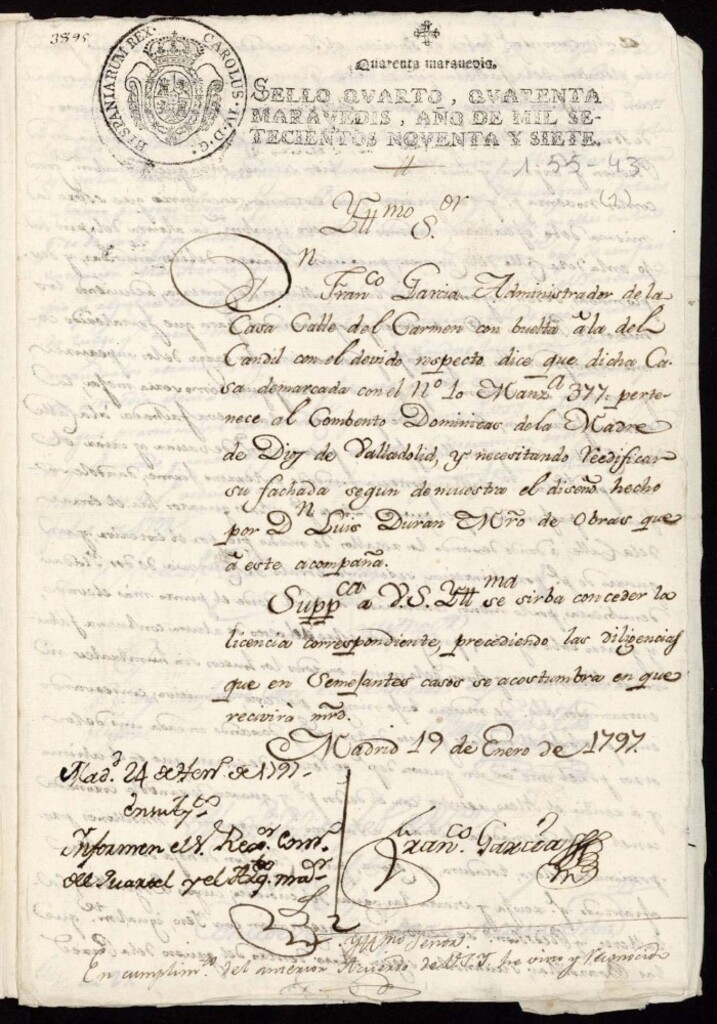 3895
HISPANIARUM REX. CAROLUS. IV. D. G.
Quarenta marauedis.
SELLO QVARTO, QVARENTA
MARAVEDIS, AÑO DE MIL SE-
TECIENTOS NOVENTA Y SIETE.
1-55-43
(2)
Yll.mo S.or
D.n Fran.co Garcia Administrador de la
Casa Calle del Carmen con buelta â la del
Candil con el devido respecto dice que dicha Ca-
sa demarcada con el N.º 10 Manz.a 377. perte-
nece al Combento Dominicas dela Madre
de Dios de Valladolid, y necesitando Reedificar
su fachada segun demuestra el diseño hecho
por D.n Luis Durán Mro de Obras que
â este acompaña.
Supp.ca a V.S. Yll.ma se sirba conceder la
licencia correspondiente, precediendo las diligencias
que en Semejantes casos se acostumbra en que
recivirà mrd.
Madrid 19 de Enero de 1797.
Mad.d 24 de En.o de 1797.
Informen el S. Reg.or Com.o
del Quartel y el Arq.to m.or
Fran.co Garcia
Yll.mo Señor
En cumplim.to del anterior Acuerdo de V.S.Y. he visto y Reconocido